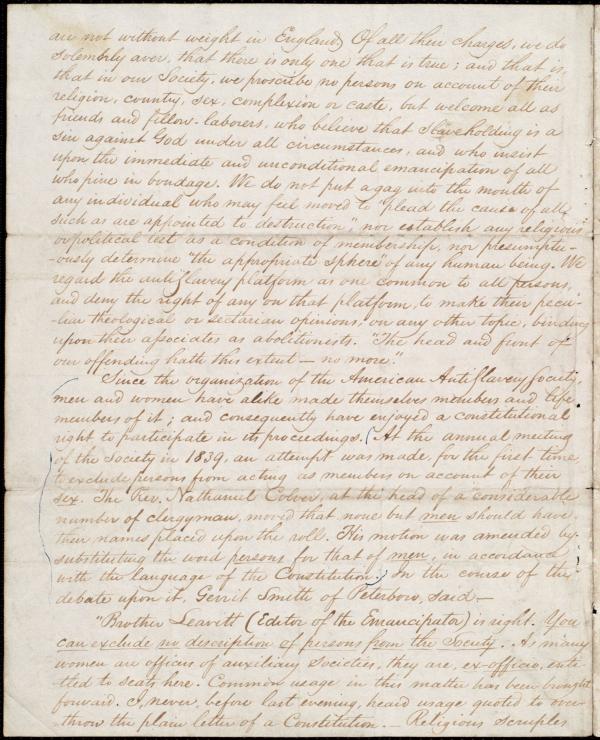 are not without weight in England. Of all their charges, we do
solemnly aver, that there is only one that is true; and that is,
that in our Society, we proscribe no persons on account of their
religion, country, sex, complexion or caste, but welcome all as
friends and fellow-laborers, who believe that Slaveholding is a
sin against God under all circumstances, and who insist
upon the immediate and unconditional emancipation of all
who pine in bondage. We do not put a gag into the mouth of
any individual who may feel moved to "plead the cause of all
such as are appointed to destruction", nor establish any religious
or political test as a condition of membership, nor presumptu-
-ously determine "the appropriate sphere" of any human being. We
regard the antiSlavery platform as one common to all persons,
and deny the right of any on that platform, to make their pecu-
-liar theological or sectarian opinions, on any other topic, binding
upon their associates as abolitionists. "The head and front of
our offending hath this extent — no more."
Since the organization of the American AntiSlavery Society,
men and women have alike made themselves members and life
members of it; and consequently have enjoyed a constitutional
right to participate in its proceedings. (At the annual meeting
of the Society in 1839, an attempt was made, for the first time,
to exclude persons from acting as members on account of their
sex. The Rev. Nathaniel Colver, at the head of a considerable
number of clergyman, moved that none but men should have
their names placed upon the roll. His motion was amended by
substituting the word persons for that of men, in accordance
with the language of the Constitution.) In the course of the
debate upon it, Gerrit Smith of Peterboro, said —
"Brother Leavitt (Editor of the Emancipator) is right. You
can exclude no description of persons from the Society. As many
women are officers of auxiliary Societies, they are, ex-officio, enti-
tled to seats here. Common usage in this matter has been brought
forward. I, never, before last evening, heard usage quoted to over-
throw the plain letter of a Constitution. — Religious scruples